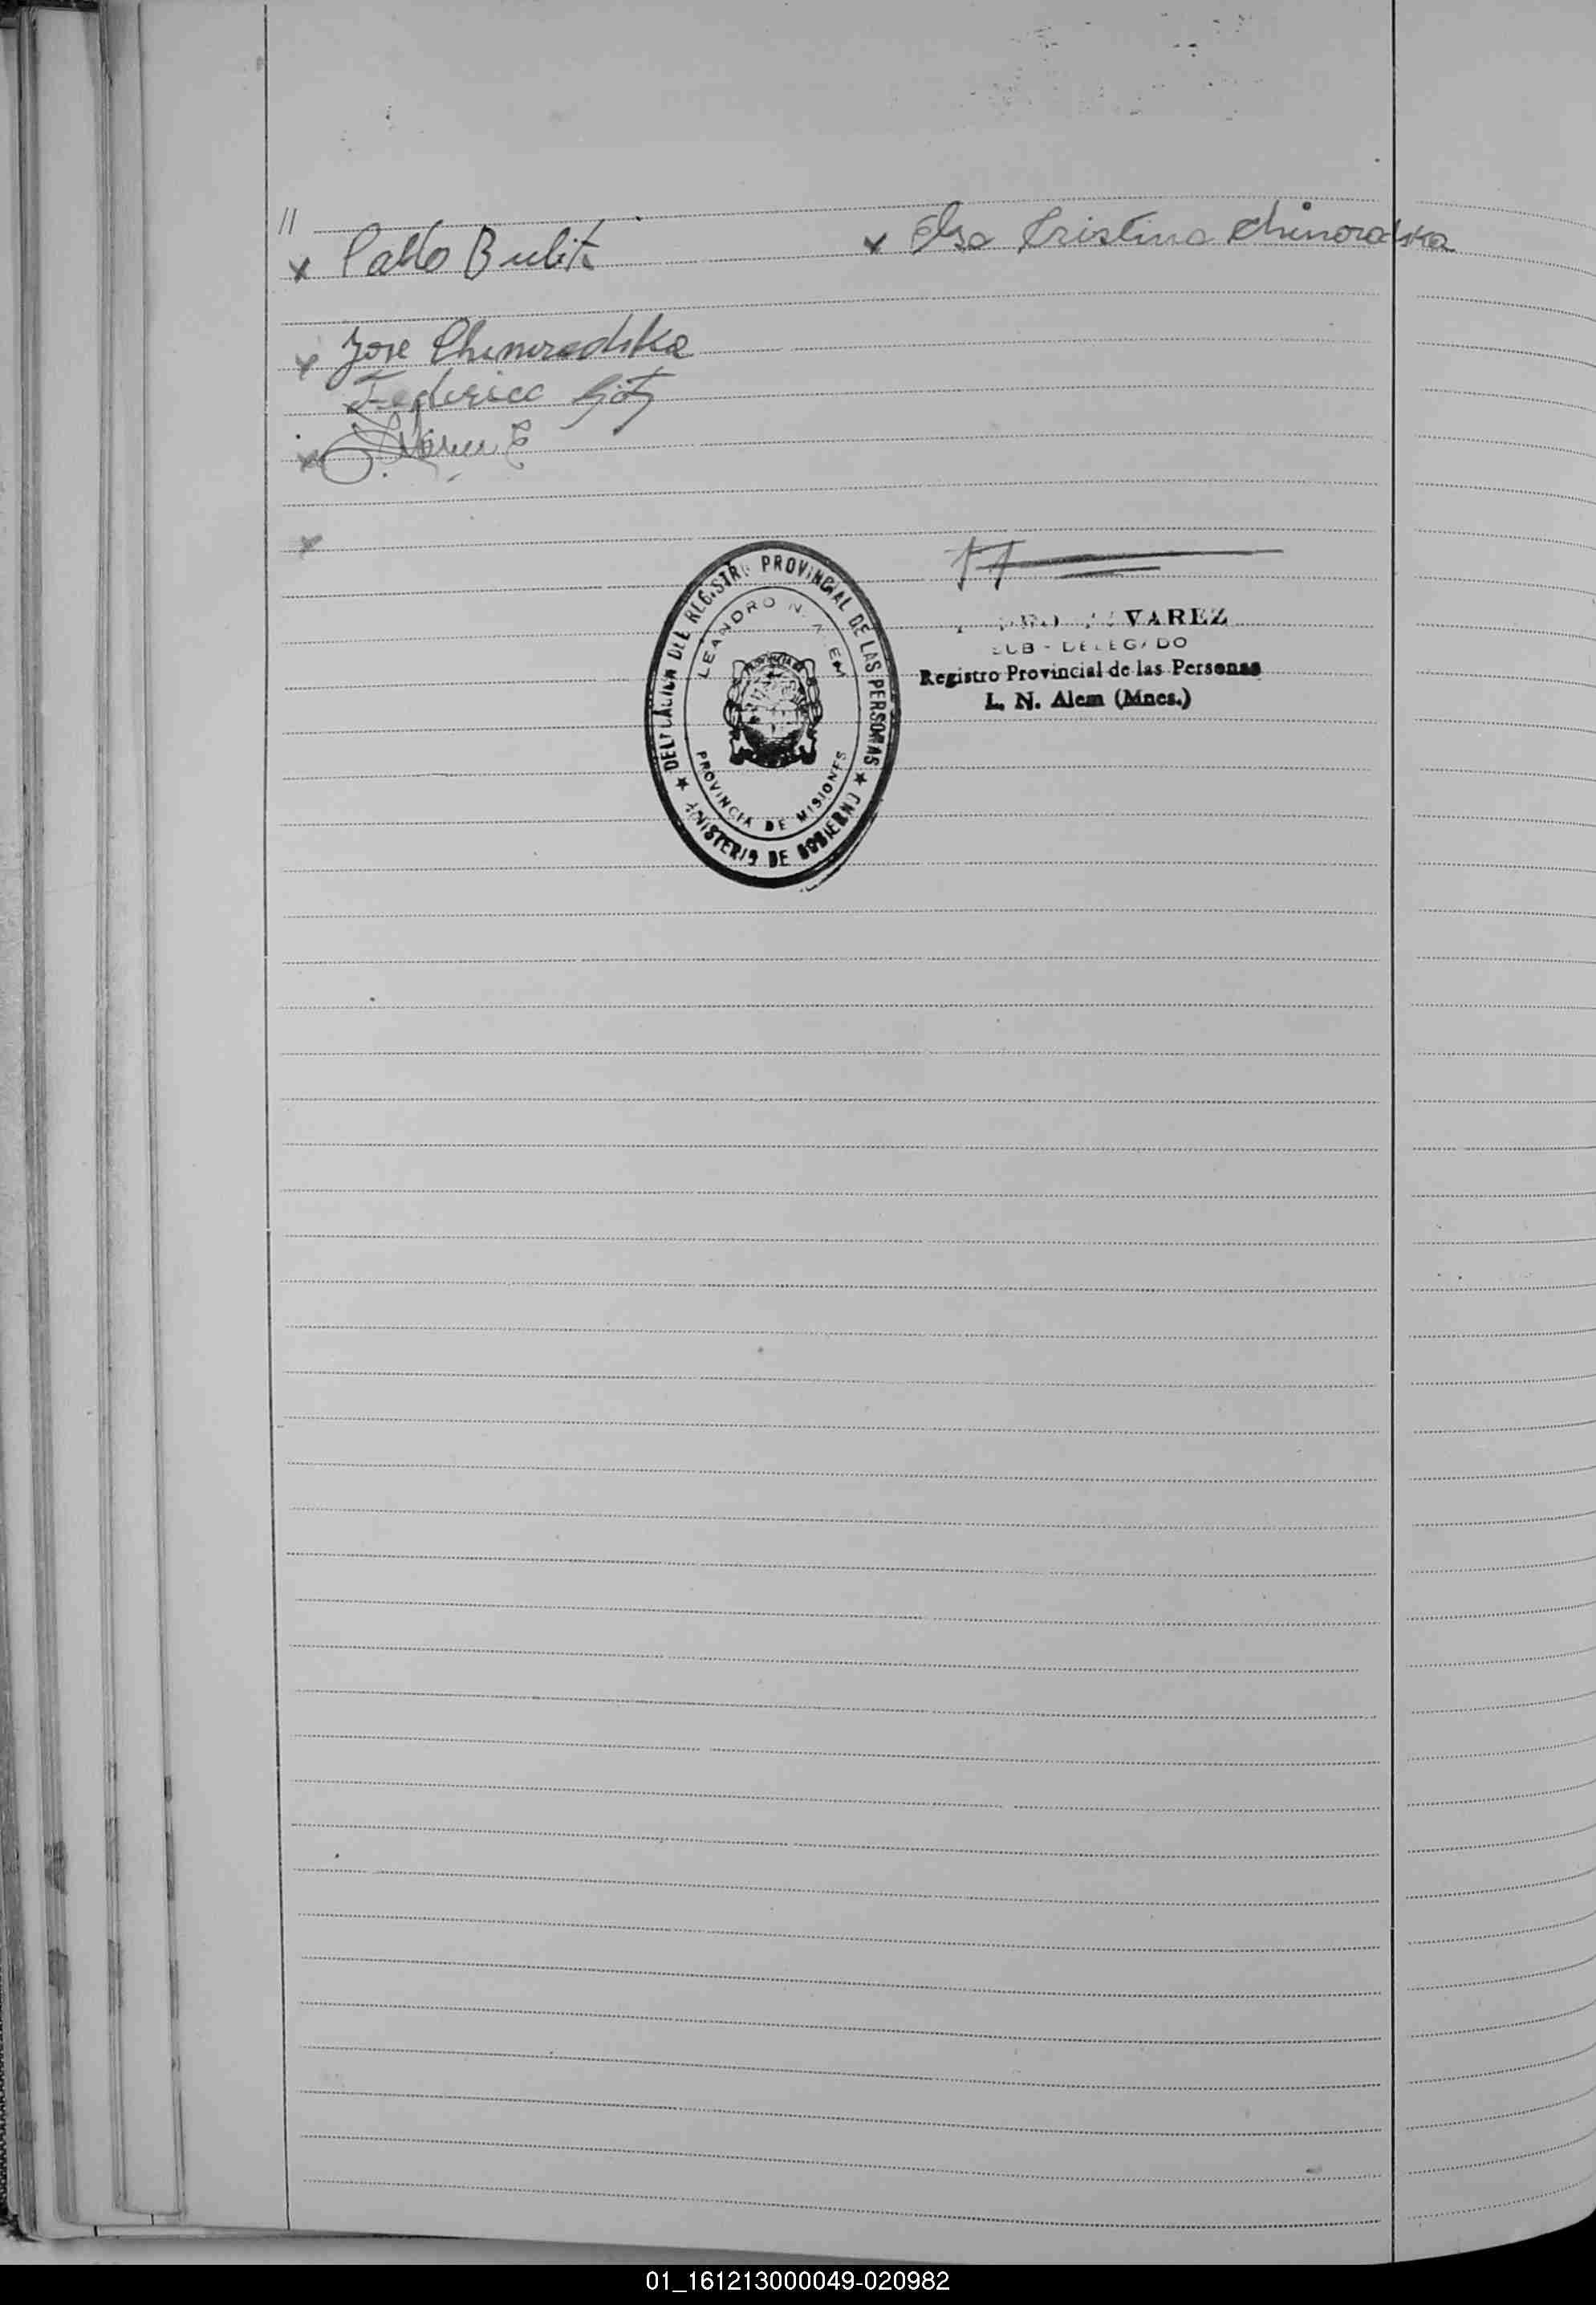 //
x Pablo Bulit x Elsa Cristina Chimoradska
x Jose
Federico
x
x
DELEGACION DEL REGISTRO PROVINCIAL DE LAS PERSONAS
LEANDRO N. ALEM
PROVINCIA DE MISIONES
★ MINISTERIO DE GOBIERNO ★
ALVAREZ
SUB - DELEGADO
Registro Provincial de las Personas
L. N. Alem (Mnes.)
01_161213000049-020982